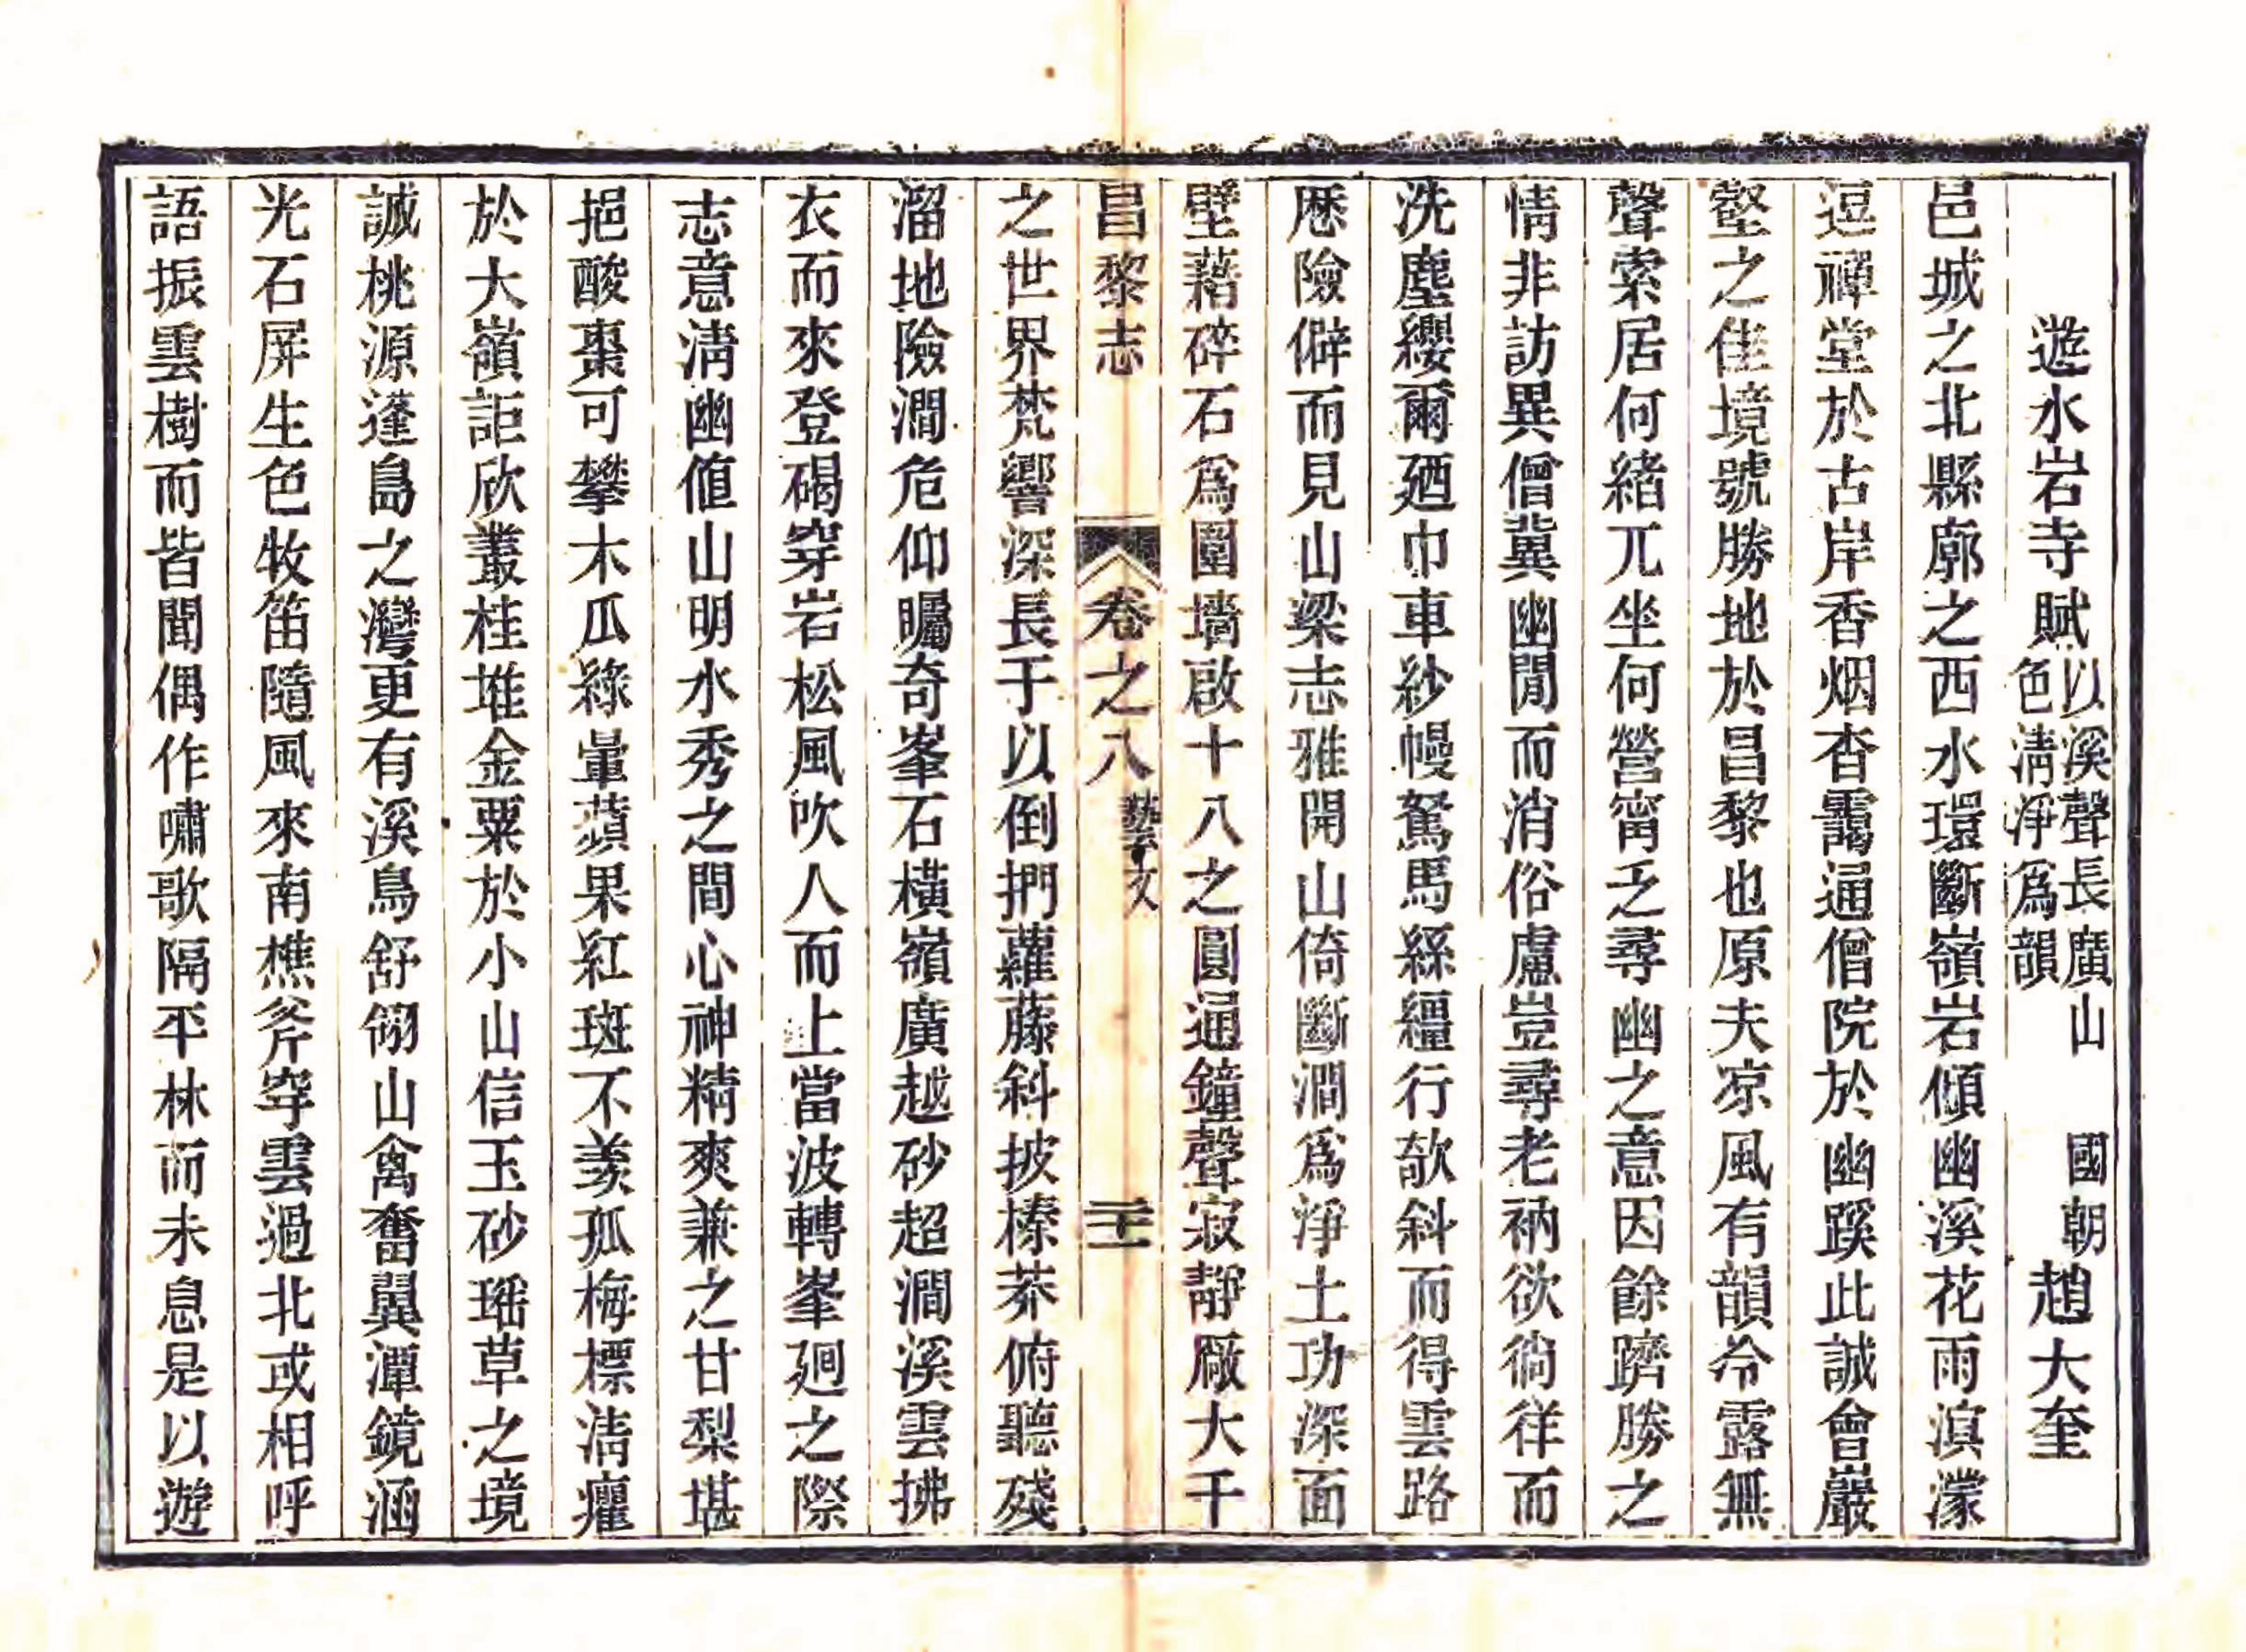 遊水岩寺賦 以溪聲長廣山色淸淨爲韻 國朝 趙大奎
邑城之北縣廓之西水環斷嶺岩傾幽溪花雨濵濛
逗禪堂於古岸香烟杳靄通僧院於幽蹊此誠會巖
壑之佳境號勝地於昌黎也原夫凉風有韻冷露無
聲索居何緒兀坐何營甯乏尋幽之意因餘躋勝之
情非訪異僧冀幽閒而消俗慮豈尋老衲欲徜徉而
洗塵纓爾廼巾車紗幔駕馬絲繮行欹斜而得雲路
厯險僻而見山梁志雅開山倚斷澗爲淨土功深面
壁藉碎石爲圍墻啟十八之圓通鐘聲寂靜厰大千
昌黎志 卷之八 藝文 三十一
之世界梵響深長于以倒捫蘿藤斜披榛莽俯聽殘
溜地險澗危仰矚奇峯石橫嶺廣越砂超澗溪雲拂
衣而來登碣穿岩松風吹人而上當波轉峯廻之際
志意淸幽値山明水秀之間心神精爽兼之甘梨堪
挹酸棗可攀木瓜綠暈蘋果紅斑不羨孤梅標淸癯
於大嶺詎欣叢桂堆金粟於小山信玉砂瑶草之境
誠桃源蓬島之灣更有溪鳥舒翎山禽奮翼潭鏡涵
光石屏生色牧笛隨風來南樵斧穿雲過北或相呼
語振雲樹而皆聞偶作嘯歌隔平林而未息是以遊